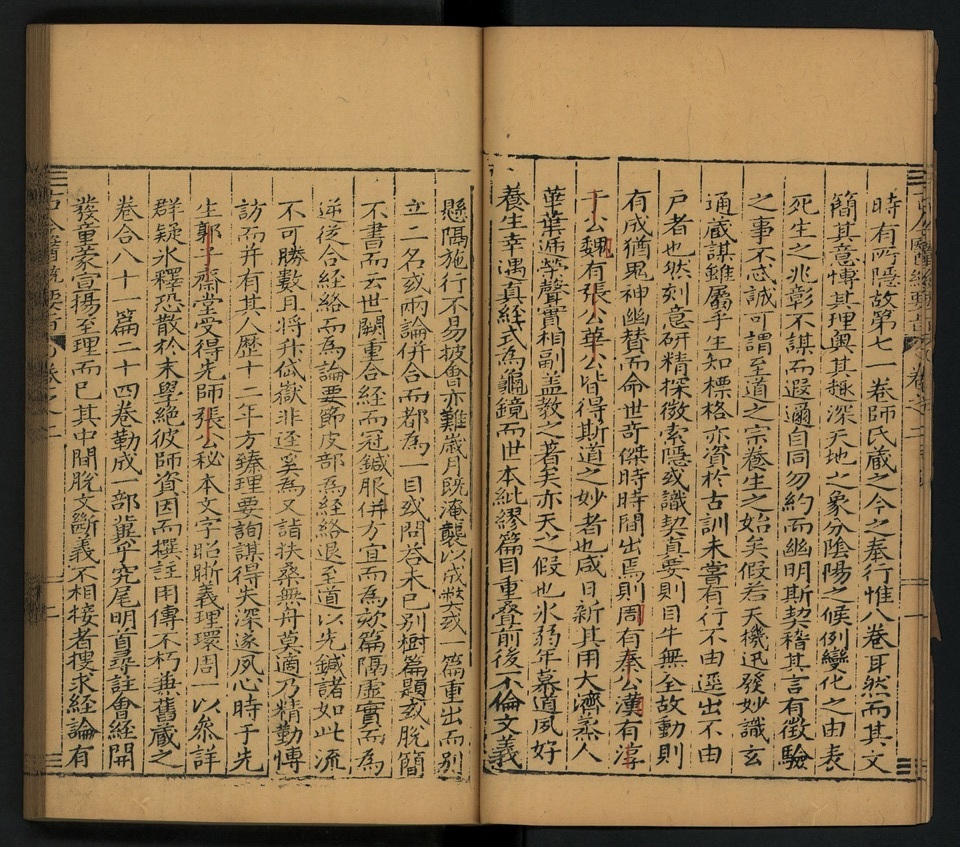 時有所隱故第七一卷師氏藏之今之奉行惟八卷耳然而其文
簡其意愽其理奧其趣深天地之象分陰陽之候例變化之由表
死生之兆彰不謀而遐邇自同勿約而幽明斯契稽其言有徵驗
之事不忒誠可謂至道之宗養生之始矣假若天機迅發妙識玄
通蕆謀雖屬乎生知標格亦資於古訓未嘗有行不由逕出不由
戶者也然刻意研精探微索隱或識契真要則目牛無全故動則
有成猶鬼神幽賛而命世奇傑時時間出焉則周有秦公漢有淳
于公魏有張公華公皆得斯道之妙者也咸日新其用大濟蒸人
華葉逓榮聲實相副盖教之著矣亦天之假也氷弱年慕道夙好
養生幸遇真經式為龜鏡而世本紕繆篇目重疊前後不倫文義
懸隔施行不易披㑹亦難歲月既淹襲以成弊或一篇重出而别
立二名或兩論併合而都為一目或問荅未已别樹篇題或脫簡
不書而云世闕重合經而冠鍼服併方宜而為欬篇隔虛實而為
逆從合經絡而為論要節皮部為經絡退至道以先鍼諸如此流
不可勝數且將升岱嶽非逕奚為又詣扶桑無舟莫適乃精勤愽
訪而并有其人歷十二年方臻理要詢謀得失深遂夙心時于先
生郭子齋堂受得先師張公秘本文字昭晣義理環周一以叅詳
群疑氷釋恐散於末學絕彼師資因而撰註用傳不朽兼舊藏之
卷合八十一篇二十四卷勒成一部冀乎究尾明首尋註㑹經開
發童蒙宣揚至理而已其中間脫文斷義不相接者搜求經論有